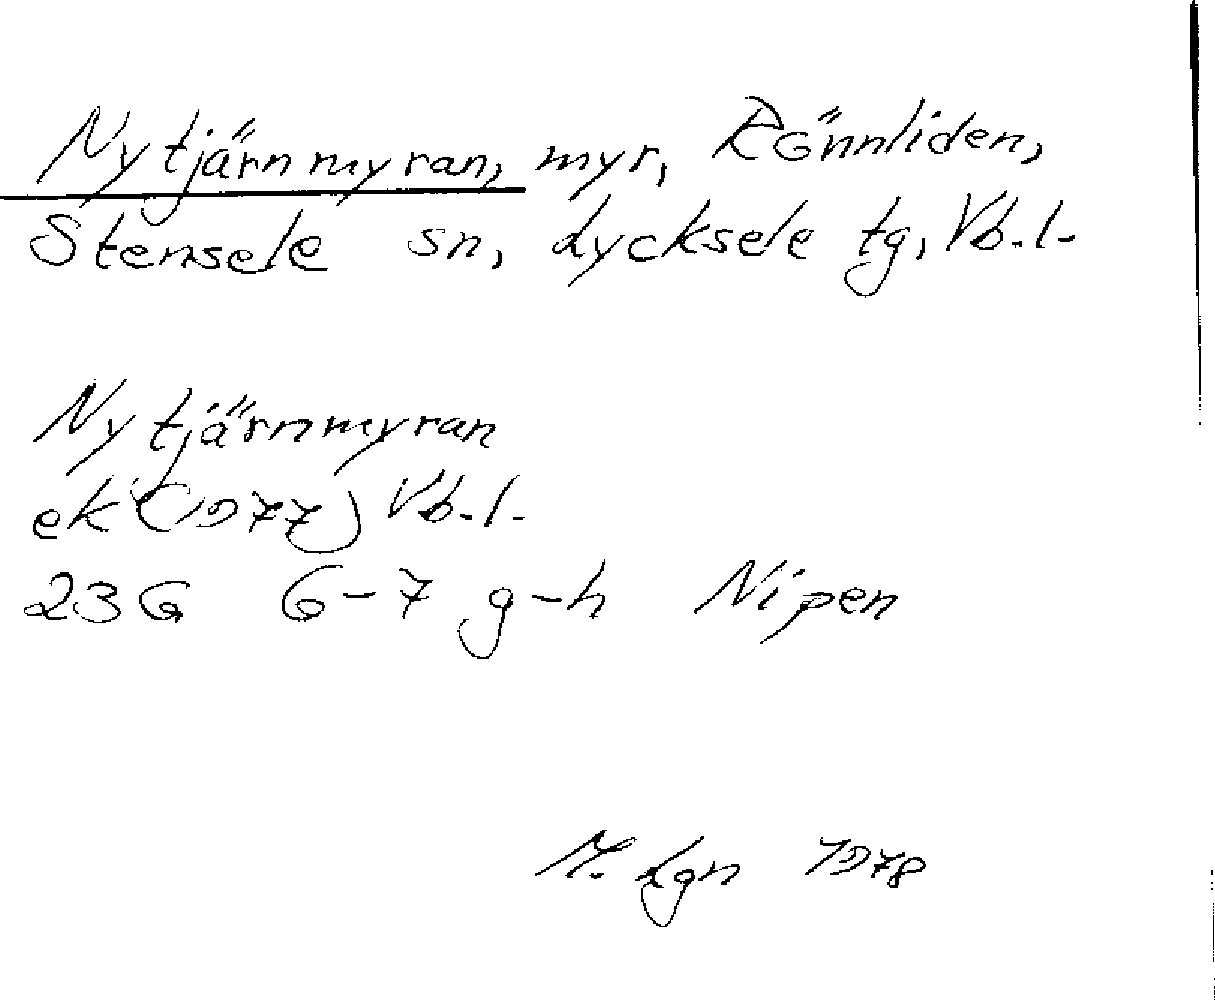 Nytjärnmyran, myr, Rönnliden,
Stensele sn, Lycksele tg, Vb.l.
Nytjärnmyran
ek (1977) Vb.l.
23G 6-7 g-h Nipen
M. Lgn 1978